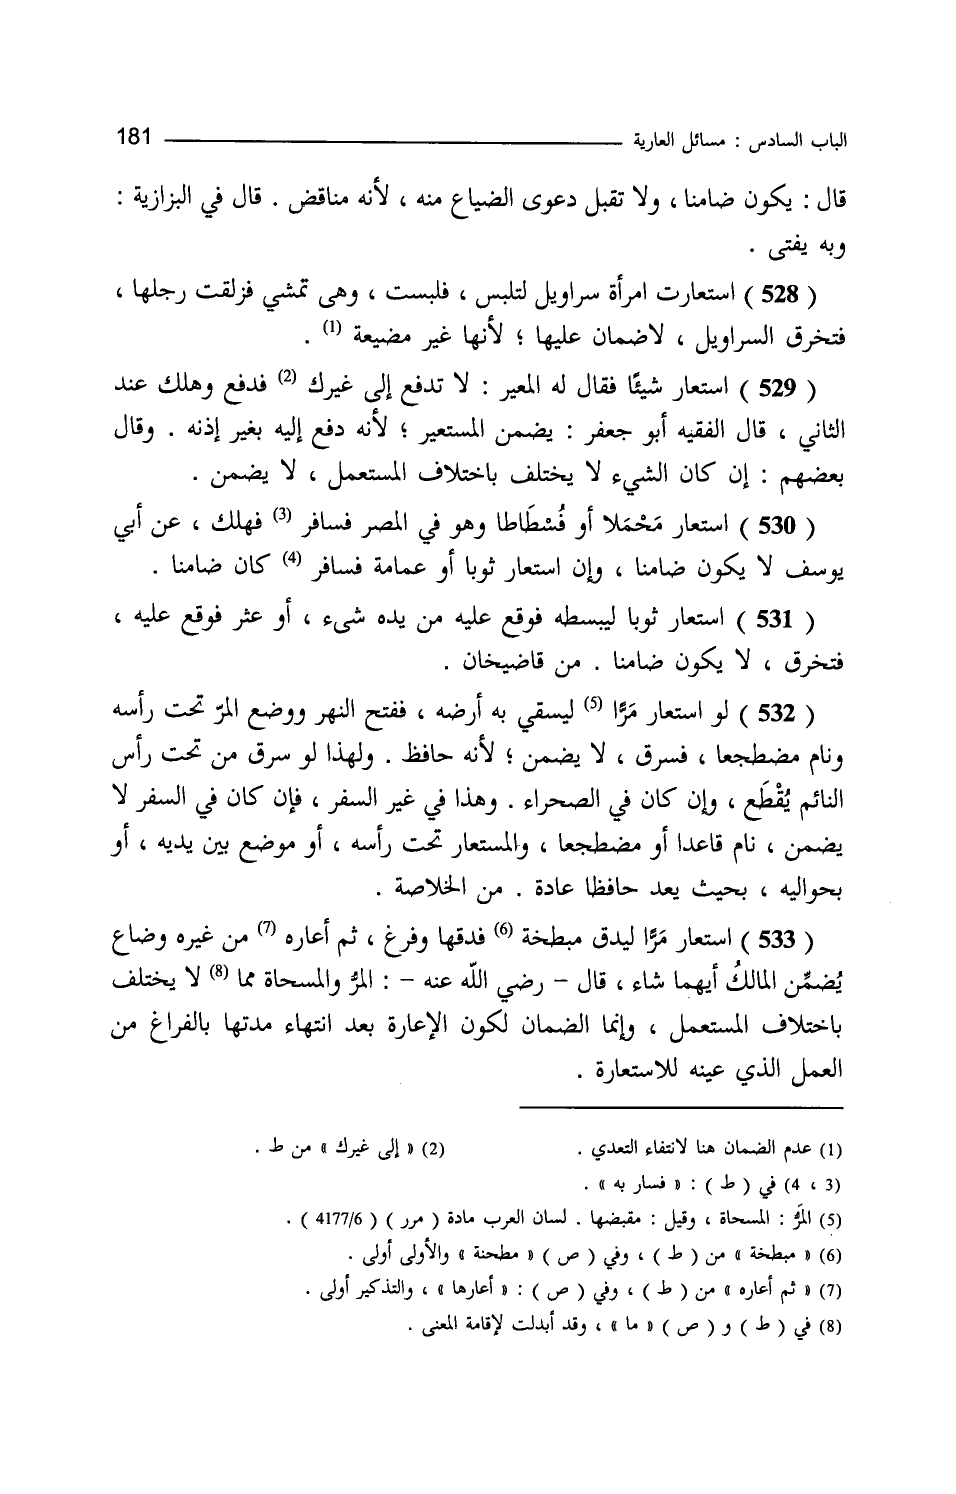 الباب السادس : مسائل العارية 181
قال : يكون ضامنا ، ولا تقبل دعوى الضياع منه ، لأنه مناقض . قال في البزازية :
وبه يفتى .
( 528 ) استعارت امرأة سراويل لتلبس ، فلبست ، وهى تمشي فزلقت رجلها ،
فتخرق السراويل ، لاضمان عليها ؛ لأنها غير مضيعة (1) .
( 529 ) استعار شيئًا فقال له المعير : لا تدفع إلى غيرك (2) فدفع وهلك عند
الثاني ، قال الفقيه أبو جعفر : يضمن المستعير ؛ لأنه دفع إليه بغير إذنه . وقال
بعضهم : إن كان الشيء لا يختلف باختلاف المستعمل ، لا يضمن .
( 530 ) استعار مَحْمَلا أو فُسْطَاطا وهو في المصر فسافر (3) فهلك ، عن أبي
يوسف لا يكون ضامنا ، وإن استعار ثوبا أو عمامة فسافر (4) كان ضامنا .
( 531 ) استعار ثوبا ليبسطه فوقع عليه من يده شىء ، أو عثر فوقع عليه ،
فتخرق ، لا يكون ضامنا . من قاضيخان .
( 532 ) لو استعار مَرًّا (5) ليسقي به أرضه ، ففتح النهر ووضع المرّ تحت رأسه
ونام مضطجعا ، فسرق ، لا يضمن ؛ لأنه حافظ . ولهذا لو سرق من تحت رأس
النائم يُقْطَع ، وإن كان في الصحراء . وهذا في غير السفر ، فإن كان في السفر لا
يضمن ، نام قاعدا أو مضطجعا ، والمستعار تحت رأسه ، أو موضع بين يديه ، أو
بحواليه ، بحيث يعد حافظا عادة . من الخلاصة .
( 533 ) استعار مَرًّا ليدق مبطخة (6) فدقها وفرغ ، ثم أعاره (7) من غيره وضاع
يُضمِّن المالكُ أيهما شاء ، قال - رضي الله عنه - : المرُّ والمسحاة مما (8) لا يختلف
باختلاف المستعمل ، وإنما الضمان لكون الإعارة بعد انتهاء مدتها بالفراغ من
العمل الذي عينه للاستعارة .
(1) عدم الضمان هنا لانتفاء التعدي . (2) « إلى غيرك » من ط .
(3 ، 4) في ( ط ) : « فسار به » .
(5) المَرُّ : المسحاة ، وقيل : مقبضها . لسان العرب مادة ( مرر ) ( 4177/6 ) .
(6) « مبطخة » من ( ط ) ، وفي ( ص ) « مطحنة » والأولى أولى .
(7) « ثم أعاره » من ( ط ) ، وفي ( ص ) : « أعارها » ، والتذكير أولى .
(8) في ( ط ) و ( ص ) « ما » ، وقد أبدلت لإقامة المعنى .